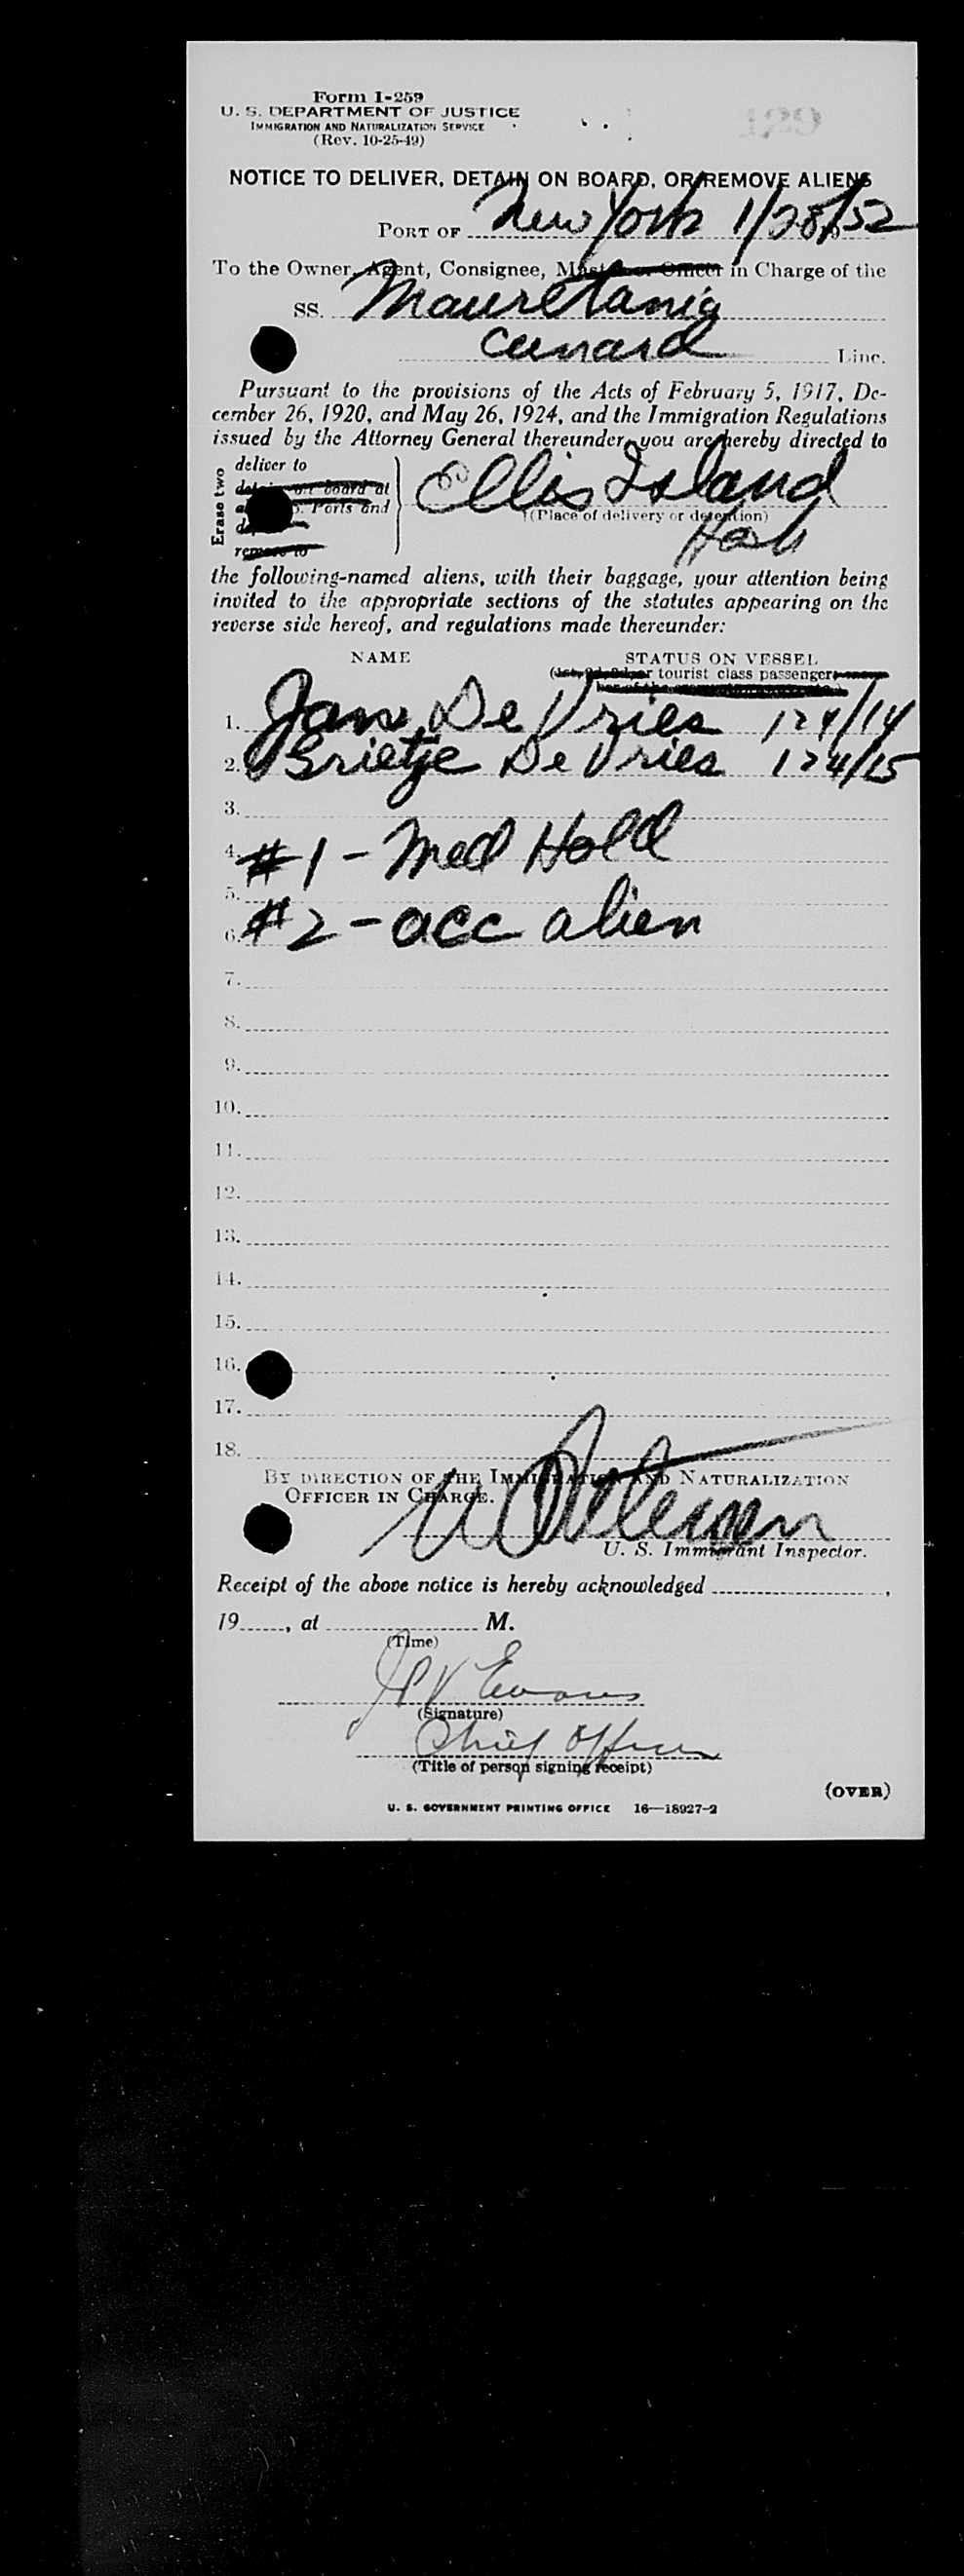 Form I-259
U. S. DEPARTMENT OF JUSTICE
IMMIGRATION AND NATURALIZATION SERVICE
(Rev. 10-25-49)
129
NOTICE TO DELIVER, DETAIN ON BOARD, OR REMOVE ALIENS
PORT OF New York 1/28/52
To the Owner, Agent, Consignee, Master or Officer in Charge of the
SS. Mauretania
Cunard Line.
Pursuant to the provisions of the Acts of February 5, 1917, De-
cember 26, 1920, and May 26, 1924, and the Immigration Regulations
issued by the Attorney General thereunder, you are hereby directed to
Erase two
deliver to
detain on board at
Ports and
remove to
Ellis Island
(Place of delivery or detention)
the following-named aliens, with their baggage, your attention being
invited to the appropriate sections of the statutes appearing on the
reverse side hereof, and regulations made thereunder:
NAME STATUS ON VESSEL
or tourist class passenger
1. Jan De Vries 124/14
2. Grietje De Vries 124/15
3.
4. #1 - Med Hold
5.
6. #2 - acc alien
7.
8.
9.
10.
11.
12.
13.
14.
15.
16.
17.
18.
BY DIRECTION OF THE IMMIGRATION AND NATURALIZATION
OFFICER IN CHARGE.
U. S. Immigrant Inspector.
Receipt of the above notice is hereby acknowledged ,
19 , at M.
(Time)
Evans
(Signature)
Chief Officer
(Title of person signing receipt)
(OVER)
U. S. GOVERNMENT PRINTING OFFICE 16—18927-2